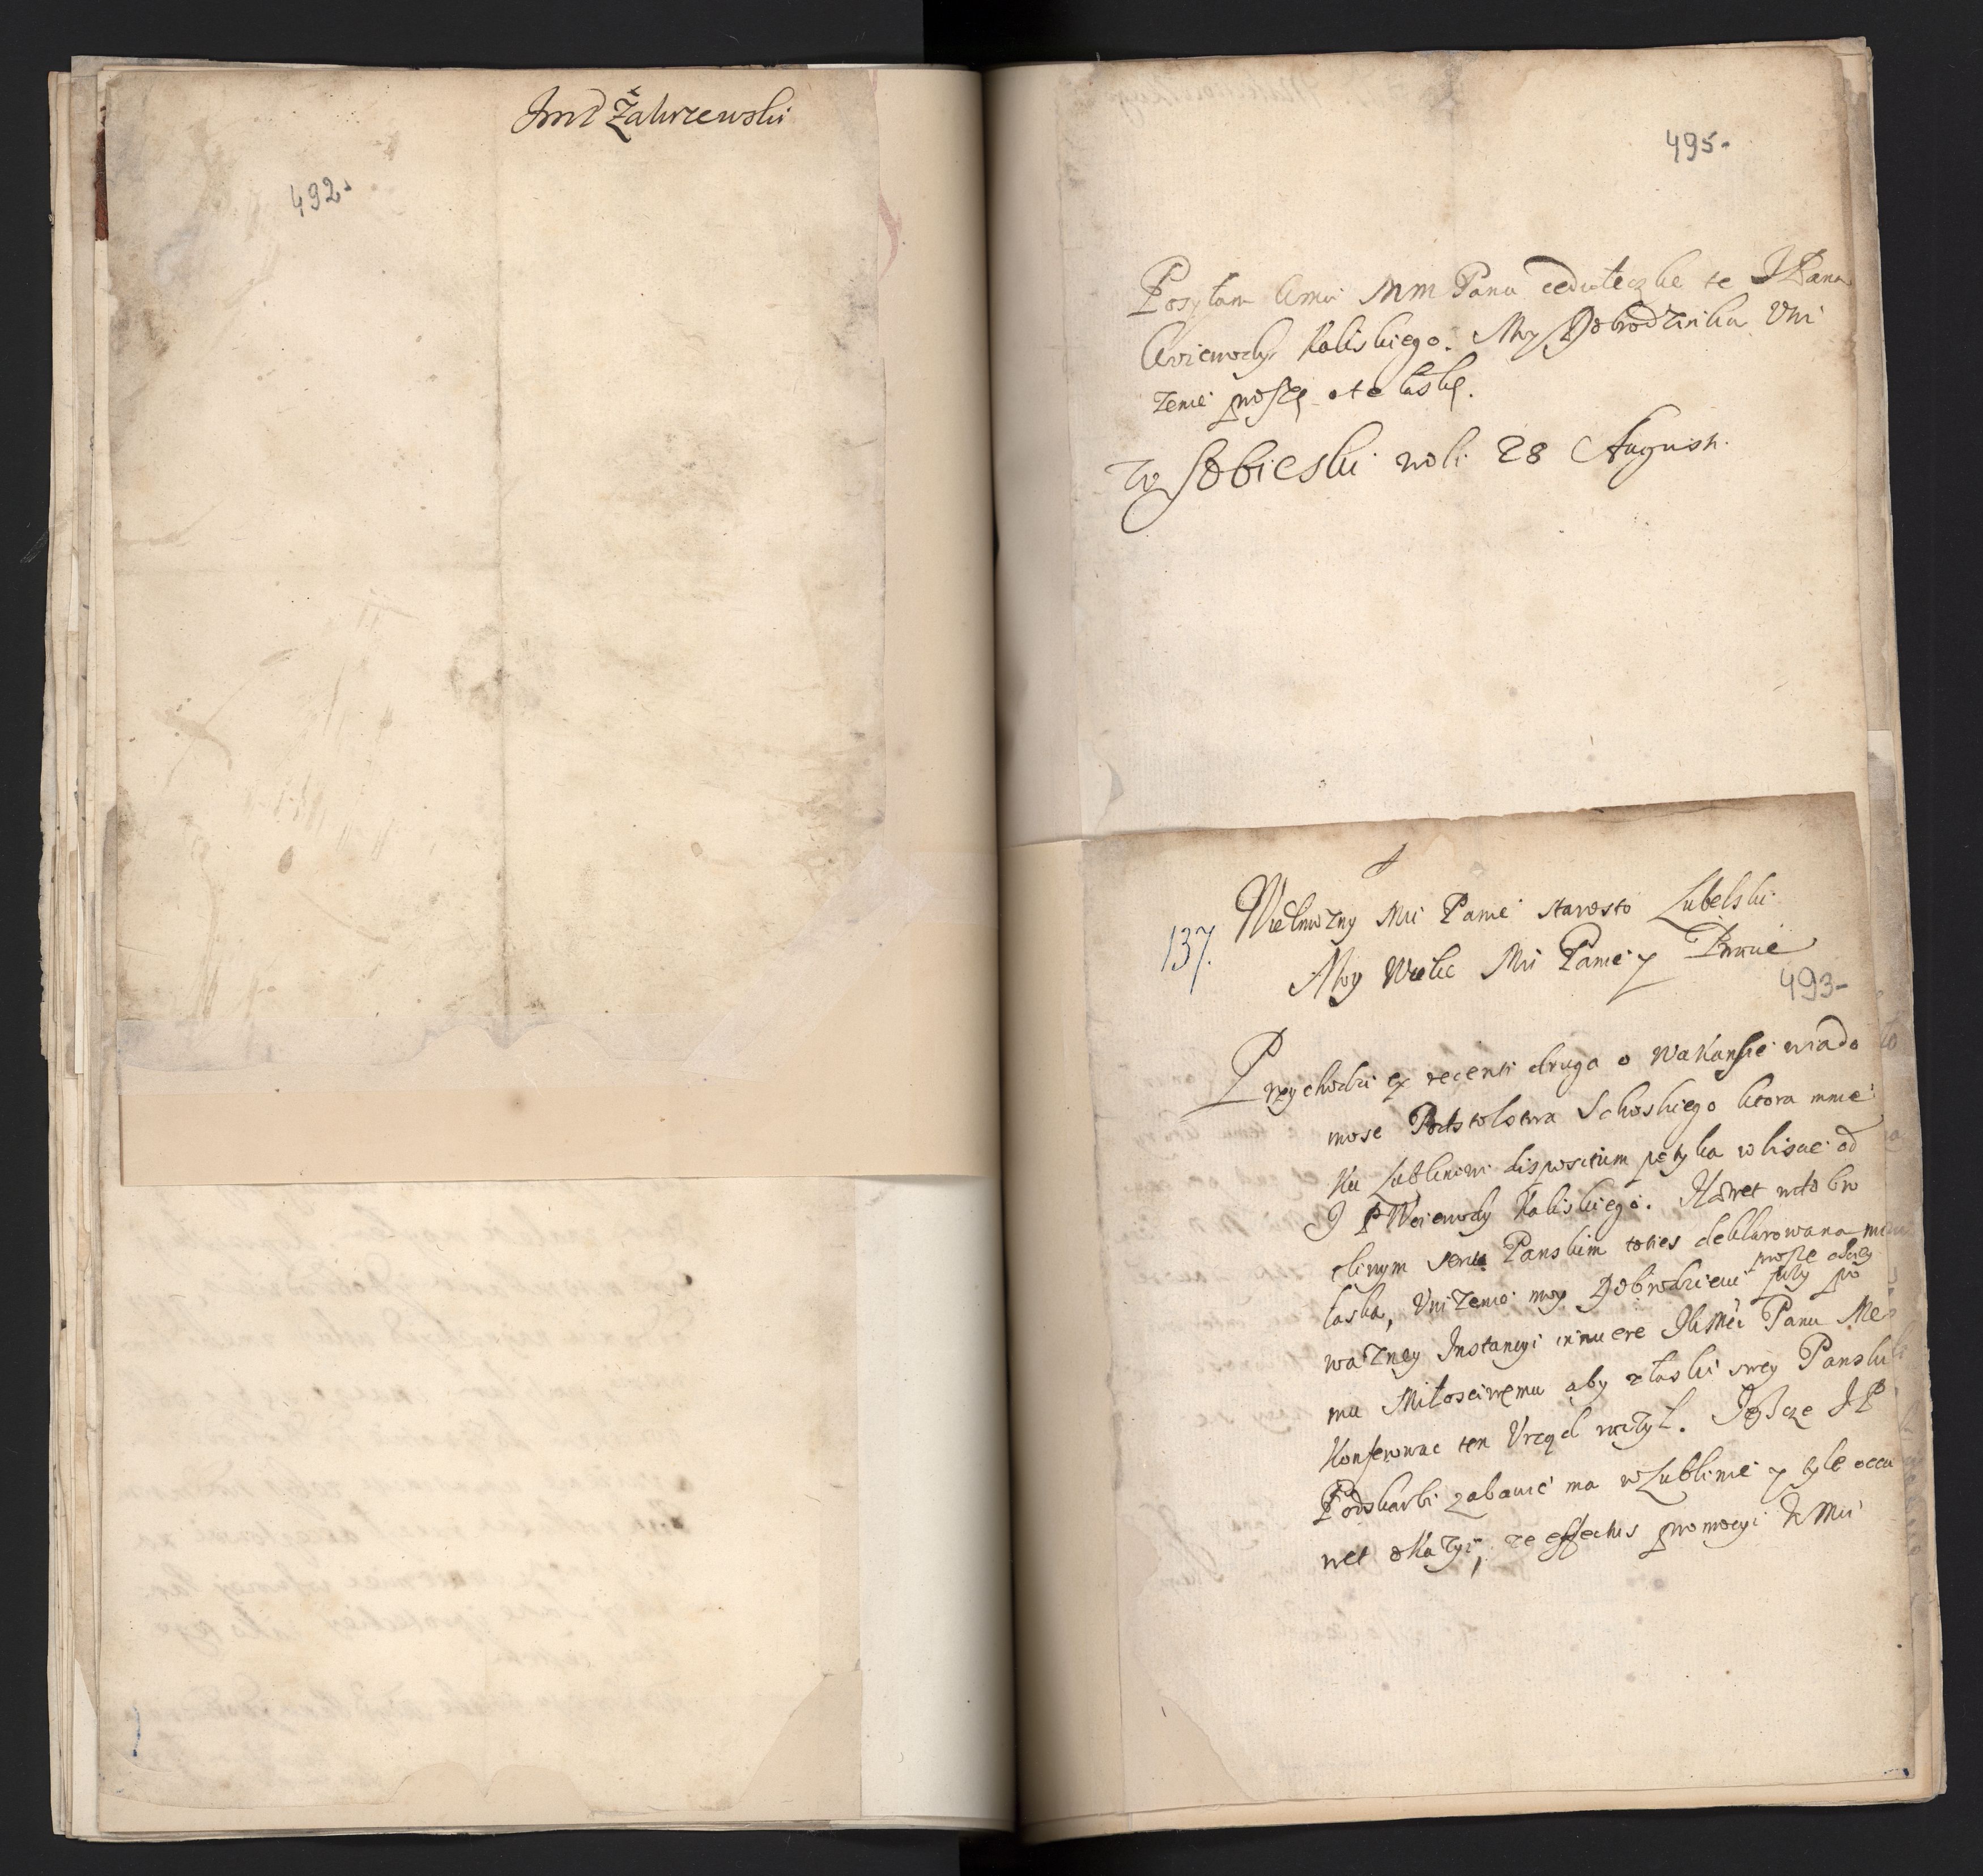 Jmć Zakrzewski
492.
495.
Posyłam Wmci MM Panu cedułeczke te J Pana
Woiewody Kaliskiego. Moy Dobrodzieiu Vni
zenie proszę o te łaskę.
Sobieski woli 28 Augusti.
137.
Wielmożny Mci Panie Starosto Lubelski
Moy Wielce Mci Panie y Bracie
493-
Przychodzi ex recenti druga o Wakansie wiado
mosc Podstolstwa ktora mnie
Ku Lublinowi dispositum potyka w liscie od
J P Woiewody Kaliskiego. Nawet w dobro
tliwym sercu Panskim toties deklarowana
łaska, Vnizenie moy Dobrodzieiu proszę abys
przy po
ważney Instancyi innuere JKMci Panu Me
mu Miłosciwemu aby z łaski swey Panskiey
Konferowac ten Vrząd raczył. Jeszcze J P
Podskarbi zabawić ma w Lublinie y tyle occu
ret okazyi, ze effectus promocyi WMci